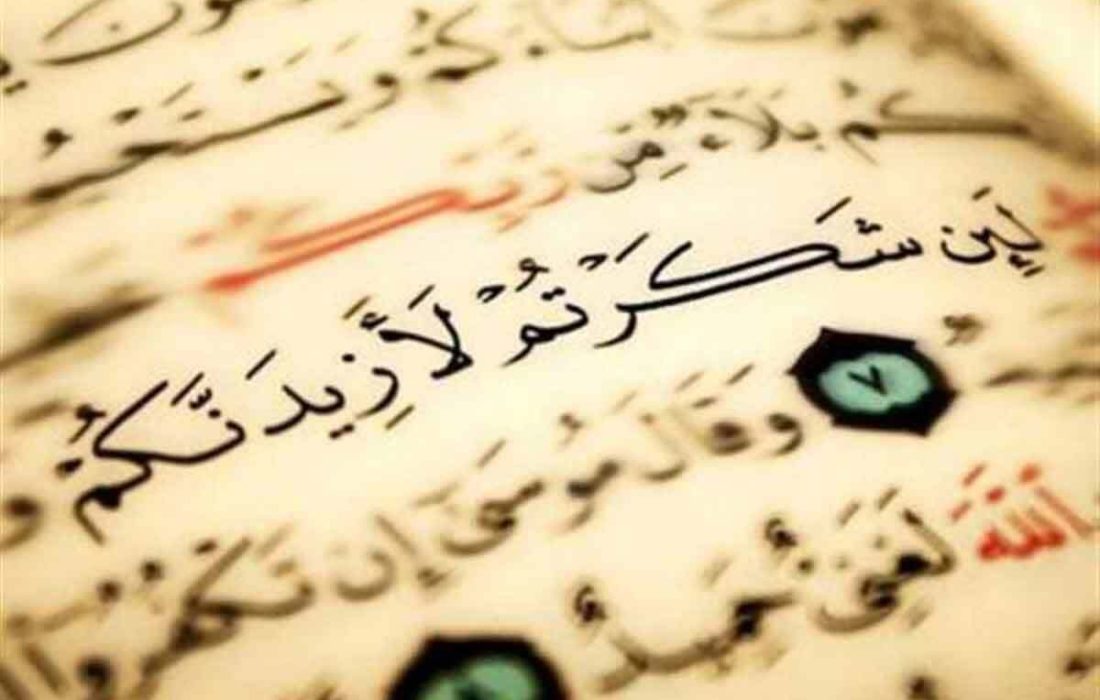 كُمْ بَلَاءٌ مِّن رَّبِّكُمْ
لَئِن شَكَرْتُمْ لَأَزِيدَنَّكُمْ
٧
وَقَالَ مُوسَىٰ إِن تَكْفُرُوا
اللَّهَ لَغَنِيٌّ حَمِيدٌ